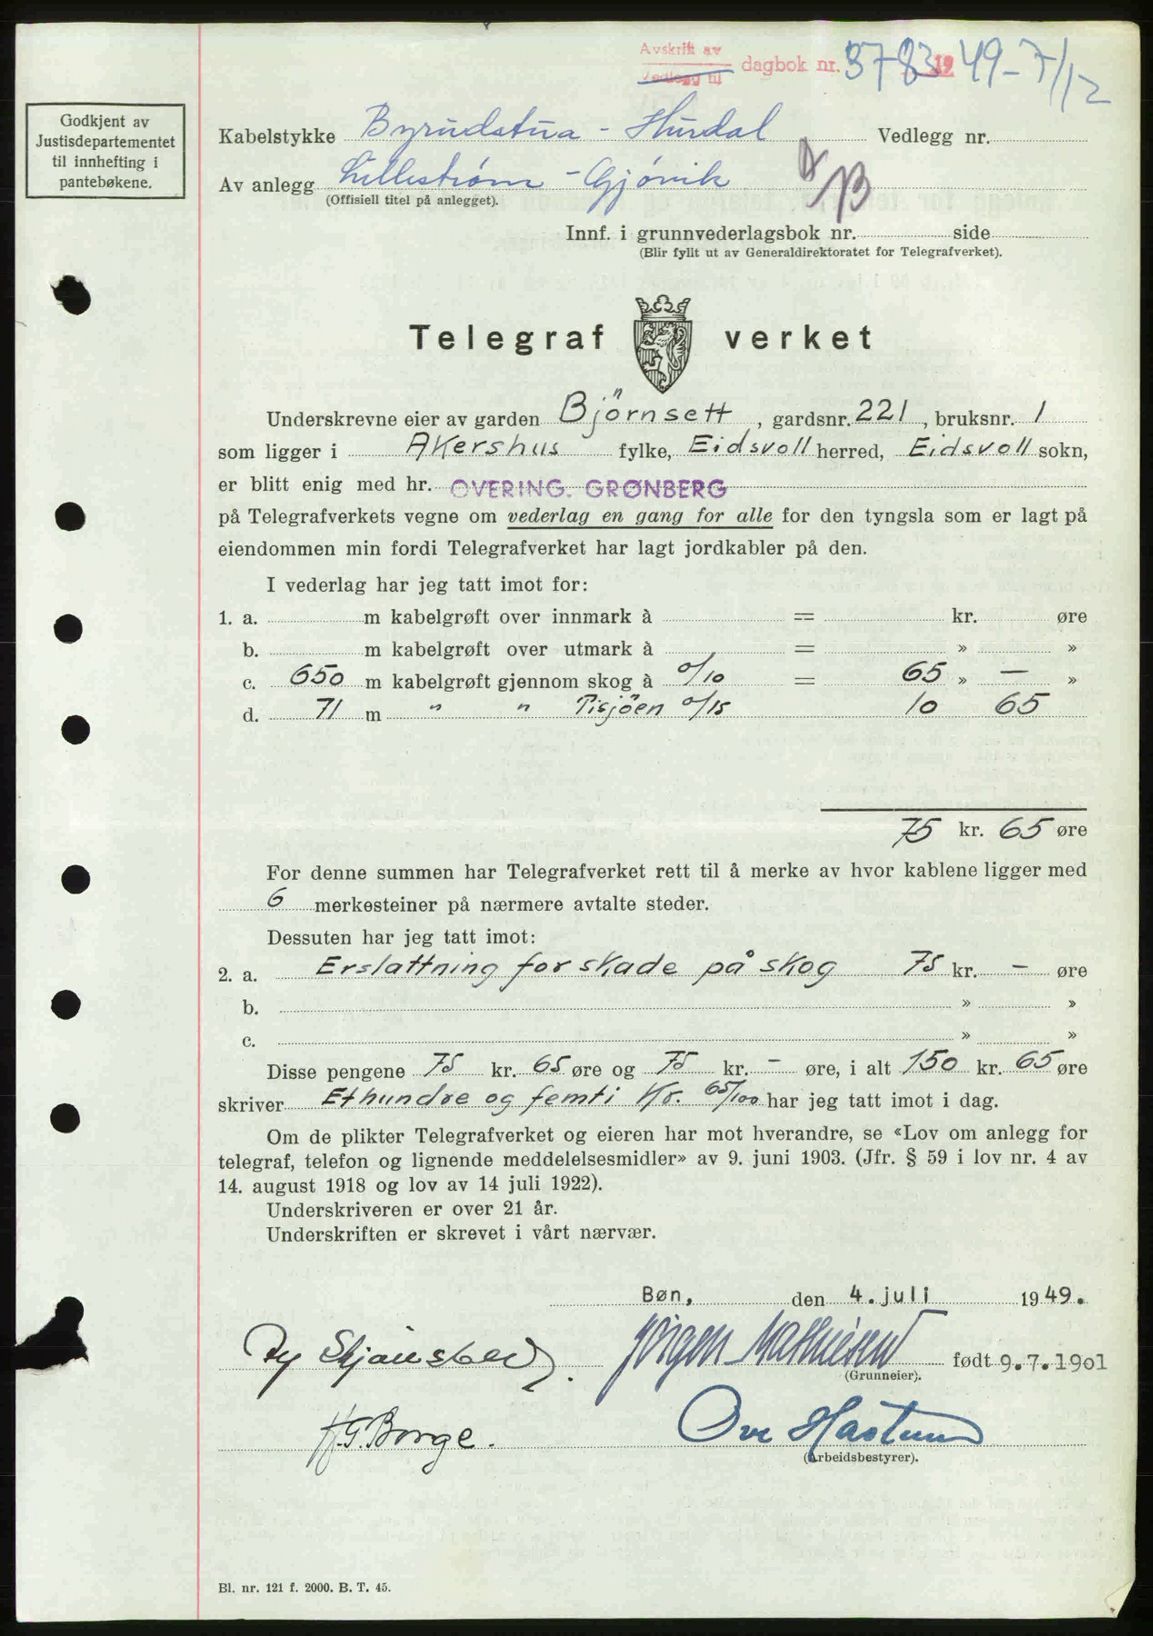 Avskrift av
Vedlegg til dagbok nr. 3783 1949 - 7/12
Godkjent av
Justisdepartementet
til innhefting i
pantebøkene.
Kabelstykke Byrudstua - Hurdal Vedlegg nr.
Av anlegg Lillestrøm - Gjøvik
(Offisiell titel på anlegget).
Innf. i grunnvederlagsbok nr. side
(Blir fyllt ut av Generaldirektoratet for Telegrafverket).
Telegraf verket
Underskrevne eier av garden Björnsett, gardsnr. 221, bruksnr. 1
som ligger i Akershus fylke, Eidsvoll herred, Eidsvoll sokn,
er blitt enig med hr. OVERING. GRØNBERG
på Telegrafverkets vegne om vederlag en gang for alle for den tyngsla som er lagt på
eiendommen min fordi Telegrafverket har lagt jordkabler på den.
I vederlag har jeg tatt imot for:
1. a. m kabelgrøft over innmark à = kr. øre
b. m kabelgrøft over utmark à = » »
c. 650 m kabelgrøft gjennom skog à 0/10 = 65 » — »
d. 71 m " " Pisjöen 0/15 10 65
75 kr. 65 øre
For denne summen har Telegrafverket rett til å merke av hvor kablene ligger med
6 merkesteiner på nærmere avtalte steder.
Dessuten har jeg tatt imot:
2. a. Erslattning for skade på skog 75 kr. - øre
b. » »
c. » »
Disse pengene 75 kr. 65 øre og 75 kr. - øre, i alt 150 kr. 65 øre
skriver Ethundre og femti Kr. 65/100 har jeg tatt imot i dag.
Om de plikter Telegrafverket og eieren har mot hverandre, se «Lov om anlegg for
telegraf, telefon og lignende meddelelsesmidler» av 9. juni 1903. (Jfr. § 59 i lov nr. 4 av
14. august 1918 og lov av 14 juli 1922).
Underskriveren er over 21 år.
Underskriften er skrevet i vårt nærvær.
Bøn, den 4. juli 1949.
Jörgen Mathiesen født 9.7.1901
(Grunneier).
H.G. Borge. Ove Hastum
(Arbeidsbestyrer).
Bl. nr. 121 f. 2000. B. T. 45.